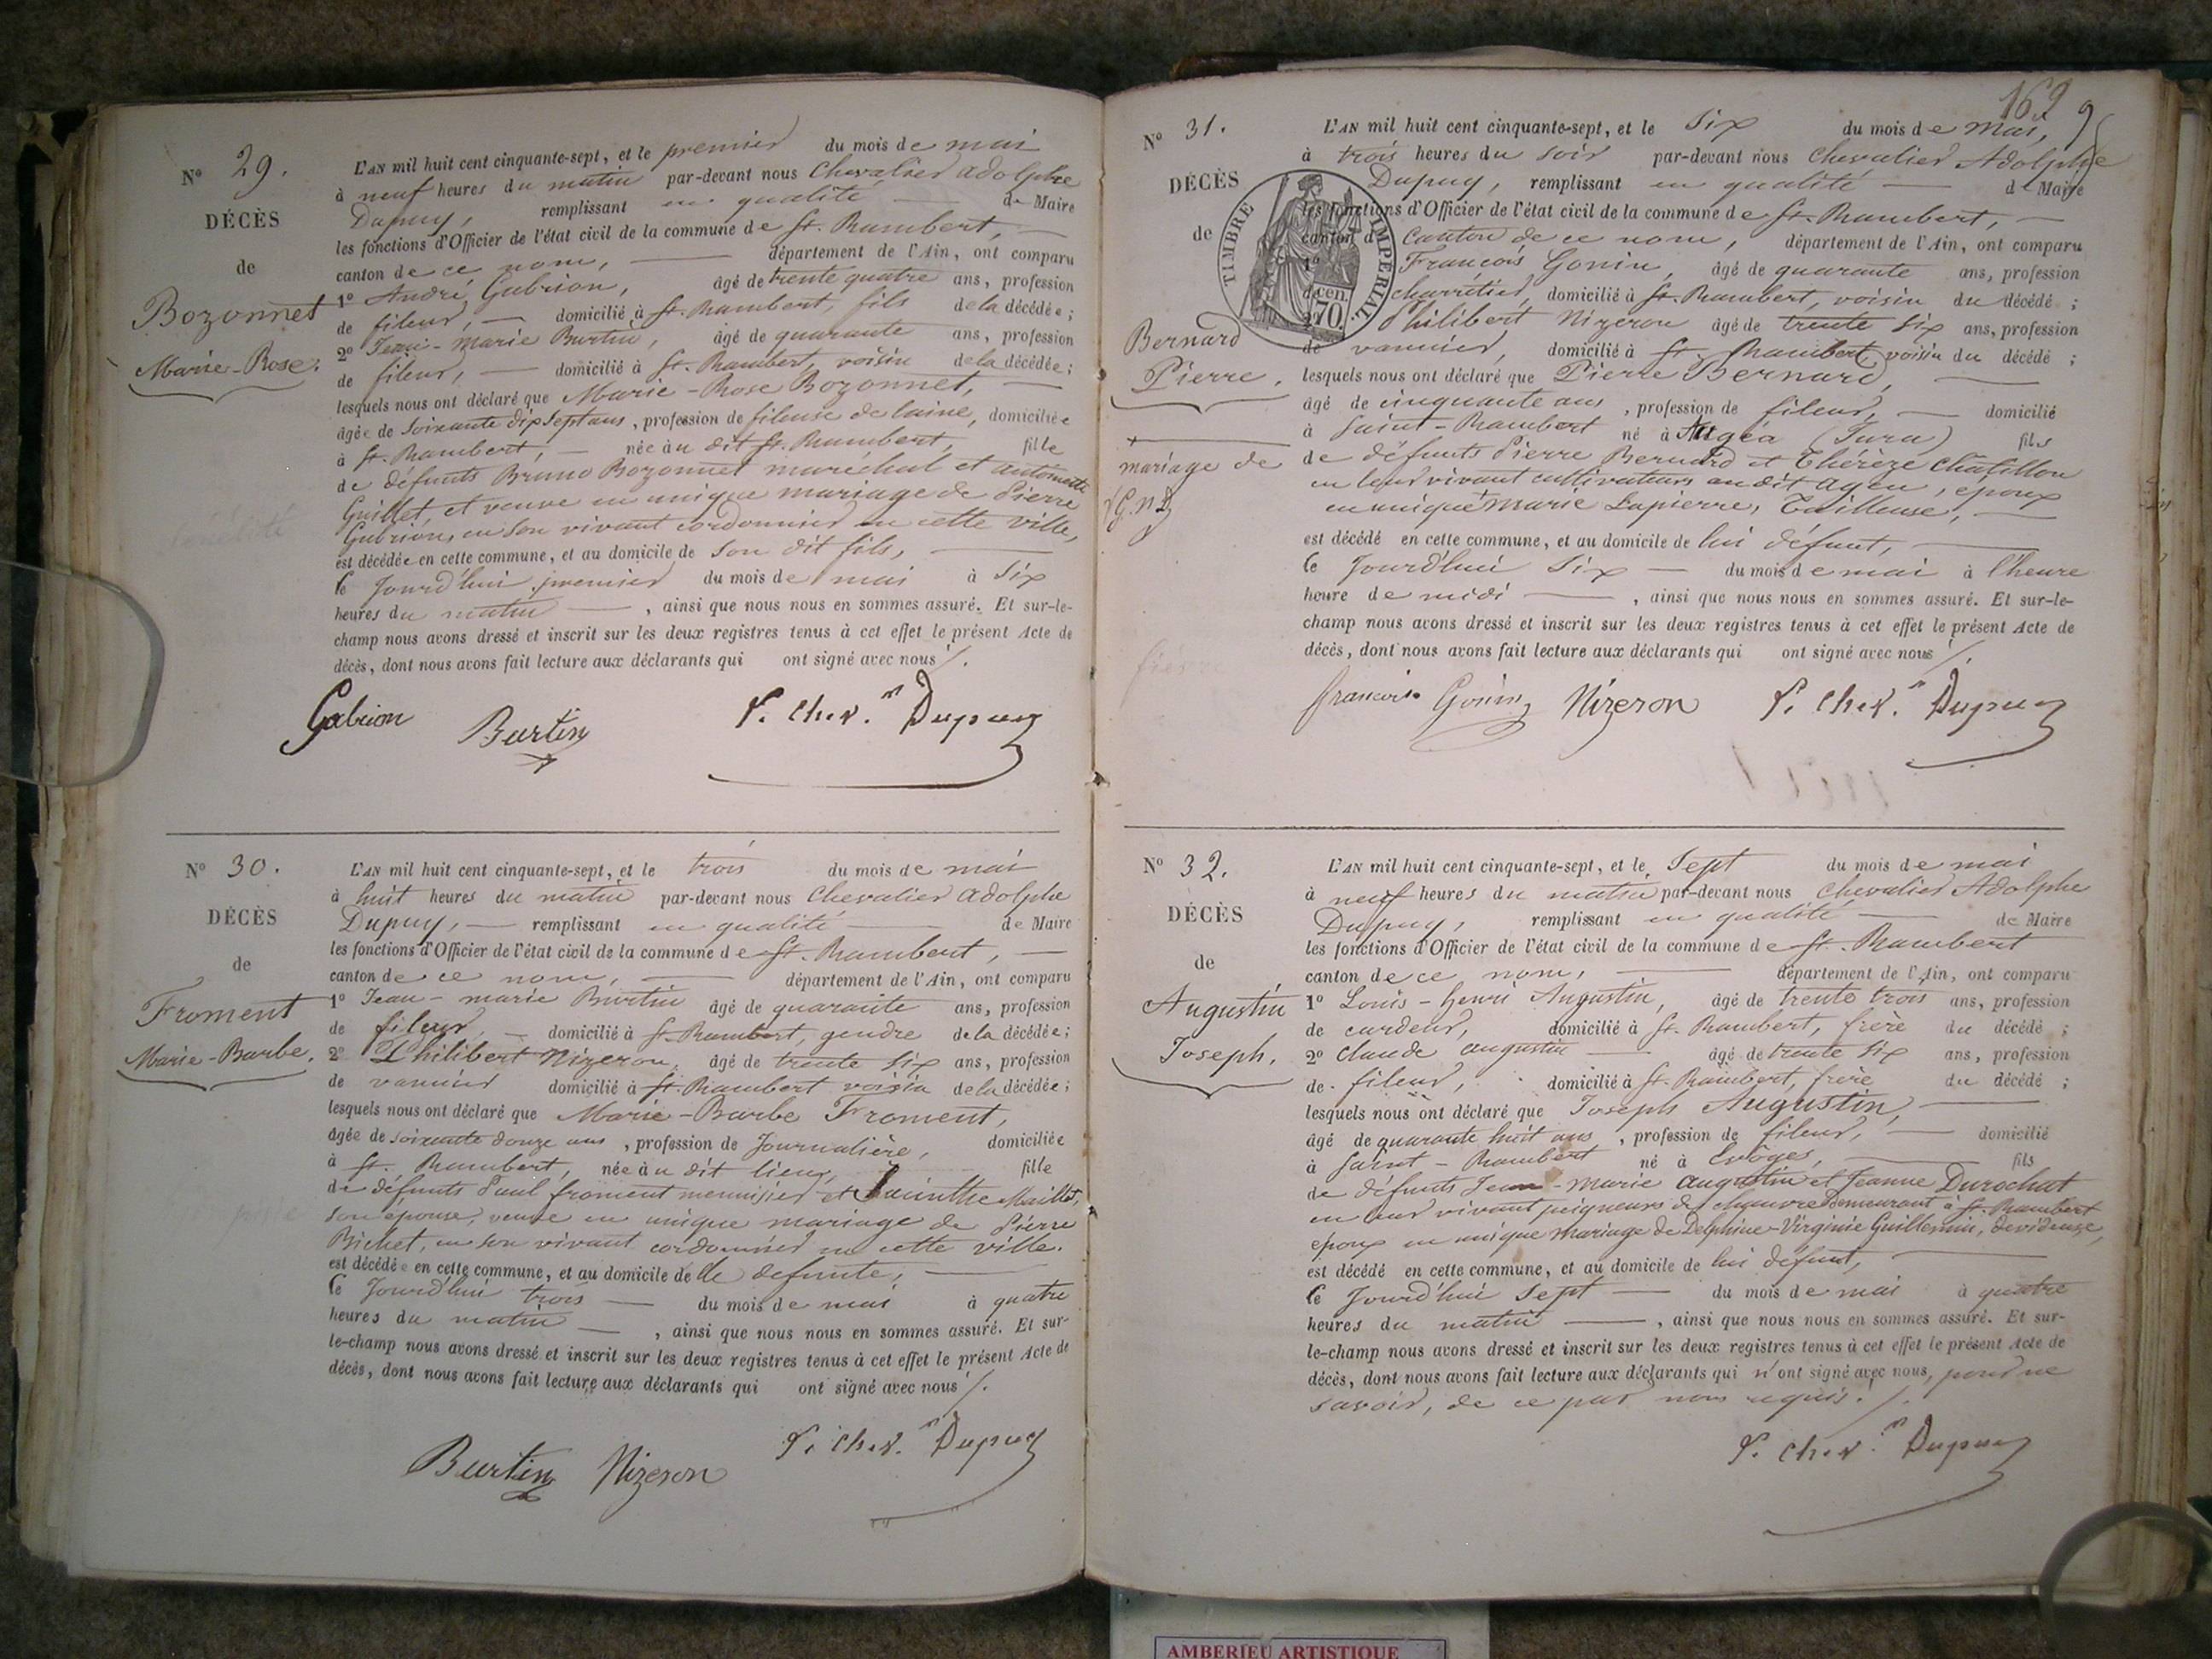 N° 29.
DÉCÈS
de
Bozonnet
Marie-Rose.
L'AN mil huit cent cinquante-sept, et le premier du mois de mai
à neuf heures du matin par-devant nous Chevalier Adolphe
Dupuy, remplissant en qualité de Maire
les fonctions d'Officier de l'état civil de la commune de St. Rambert,
canton de ce nom, département de l'Ain, ont comparu
1° André Gabrion, âgé de trente quatre ans, profession
de fileur, domicilié à St. Rambert, fils de la décédée;
2° Jean-Marie Burtin, âgé de quarante ans, profession
de fileur, domicilié à St. Rambert, voisin de la décédée;
lesquels nous ont déclaré que Marie-Rose Bozonnet,
âgée de Soixante dix Sept ans, profession de fileuse de laine, domiciliée
à St. Rambert, née au dit St. Rambert, fille
de défunts Bruno Bozonnet maréchal et Antoinette
Guillet, et veuve en unique mariage de Pierre
Gabrion, en son vivant cordonnier en cette ville,
est décédée en cette commune, et au domicile de son dit fils,
le Jourd'hui premier du mois de mai à Six
heures du matin, ainsi que nous nous en sommes assuré. Et sur-le-
champ nous avons dressé et inscrit sur les deux registres tenus à cet effet le présent Acte de
décès, dont nous avons fait lecture aux déclarants qui ont signé avec nous /.
Gabrion Burtin P. Cher.er Dupuy
N° 30.
DÉCÈS
de
Froment
Marie-Barbe.
L'AN mil huit cent cinquante-sept, et le trois du mois de mai
à huit heures du matin par-devant nous Chevalier Adolphe
Dupuy, remplissant en qualité de Maire
les fonctions d'Officier de l'état civil de la commune de St. Rambert,
canton de ce nom, département de l'Ain, ont comparu
1° Jean-marie Burtin âgé de quarante ans, profession
de fileur, domicilié à St. Rambert, gendre de la décédée;
2° Philibert Nizeron, âgé de trente six ans, profession
de vannier domicilié à St. Rambert voisin de la décédée;
lesquels nous ont déclaré que Marie-Barbe Froment,
âgée de soixante douze ans, profession de Journalière, domiciliée
à St. Rambert, née au dit lieu, fille
de défunts Paul froment menuisier et Jacinthe Maillet,
son epouse, veuve en unique mariage de Pierre
Bichet, en son vivant cordonnier en cette ville.
est décédée en cette commune, et au domicile de elle defunte,
le Jourd'hui trois du mois de mai à quatre
heures du matin, ainsi que nous nous en sommes assuré. Et sur-
le-champ nous avons dressé et inscrit sur les deux registres tenus à cet effet le présent Acte de
décès, dont nous avons fait lecture aux déclarants qui ont signé avec nous /.
Burtin Nizeron P. Cher.er Dupuy
162
N° 31.
DÉCÈS
de
Bernard
Pierre.
mariage de
TIMBRE IMPERIAL
70 cen.
L'AN mil huit cent cinquante-sept, et le Six du mois de mai,
à trois heures du soir par-devant nous Chevalier Adolphe
Dupuy, remplissant en qualité de Maire
les fonctions d'Officier de l'état civil de la commune de St. Rambert,
canton d Canton de ce nom, département de l'Ain, ont comparu
1° François Gonin, âgé de quarante ans, profession
de charretier, domicilié à St. Rambert, voisin du décédé;
Philibert Nizeron âgé de trente six ans, profession
de vannier, domicilié à St. Rambert, voisin du décédé;
lesquels nous ont déclaré que Pierre Bernard,
âgé de cinquante ans, profession de fileur, domicilié
à Saint-Rambert né à Augéa (Jura) fils
de défunts Pierre Bernard et Thérèze Châtillon
en leur vivant cultivateurs au dit Agea, epoux
en unique marie Lapierre, Tailleuse,
est décédé en cette commune, et au domicile de lui défunt,
le Jourd'hui Six du mois de mai à l'heure
heure de midi, ainsi que nous nous en sommes assuré. Et sur-le-
champ nous avons dressé et inscrit sur les deux registres tenus à cet effet le présent Acte de
décès, dont nous avons fait lecture aux déclarants qui ont signé avec nous /.
francois Gonin Nizeron P. Cher.er Dupuy
N° 32.
DÉCÈS
de
Augustin
Joseph.
L'AN mil huit cent cinquante-sept, et le Sept du mois de mai
à neuf heures du matin par-devant nous Chevalier Adolphe
Dupuy, remplissant en qualité de Maire
les fonctions d'Officier de l'état civil de la commune de St. Rambert
canton de ce nom, département de l'Ain, ont comparu
1° Louis-henri Augustin, âgé de trente trois ans, profession
de cardeur, domicilié à St. Rambert, frère du décédé;
2° Claude augustin âgé de trente six ans, profession
de fileur, domicilié à St. Rambert, frère du décédé;
lesquels nous ont déclaré que Joseph Augustin,
âgé de quarante huit ans, profession de fileur, domicilié
à Saint-Rambert né à Evôges, fils
de défunts Jean-Marie Augustin et Jeanne Durochat
en leur vivant peigneurs de chanvre demeurant à St. Rambert
epoux en unique mariage de Delphine-Virginie Guillermin, devideuse,
est décédé en cette commune, et au domicile de lui défunt,
le Jourd'hui Sept du mois de mai à quatre
heures du matin, ainsi que nous nous en sommes assuré. Et sur-
le-champ nous avons dressé et inscrit sur les deux registres tenus à cet effet le présent Acte de
décès, dont nous avons fait lecture aux déclarants qui n'ont signé avec nous, pour ne
savoir, de ce par nous requis. /.
P. Cher.er Dupuy
AMBERIEU ARTISTIQUE